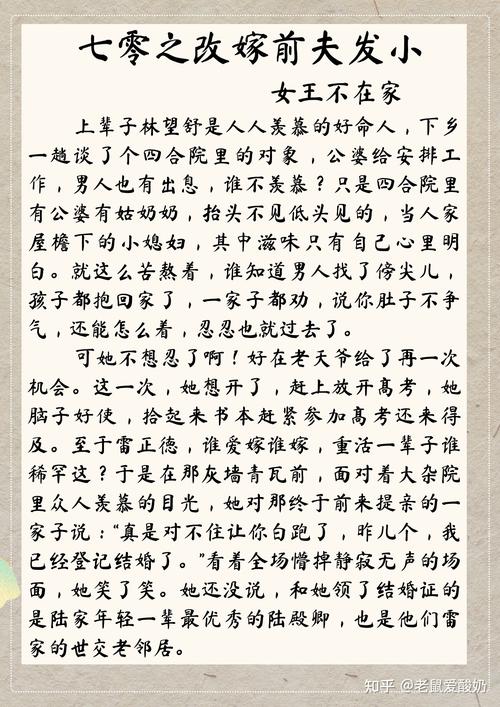 七零之改嫁前夫发小
女王不在家
上辈子林望舒是人人羡慕的好命人，下乡
一趟谈了个四合院里的对象，公婆给安排工
作，男人也有出息，谁不羡慕？只是四合院里
有公婆有姑奶奶，抬头不见低头见的，当人家
屋檐下的小媳妇，其中滋味只有自己心里明
白。就这么苦熬着，谁知道男人找了傍尖儿，
孩子都抱回家了，一家子都劝，说你肚子不争
气，还能怎么着，忍忍也就过去了。
可她不想忍了啊！好在老天爷给了再一次
机会。这一次，她想开了，赶上放开高考，她
脑子好使，拾起来书本赶紧参加高考还来得
及。至于雷正德，谁爱嫁谁嫁，重活一辈子谁
稀罕这？于是在那灰墙青瓦前，面对着大杂院
里众人羡慕的目光，她对那终于前来提亲的一
家子说：“真是对不住让你白跑了，昨儿个，我
已经登记结婚了。”看着全场懵掉静寂无声的场
面，她笑了笑。她还没说，和她领了结婚证的
是陆家年轻一辈最优秀的陆殿卿，也是他们雷
家的世交老邻居。
知乎 @老鼠爱酸奶